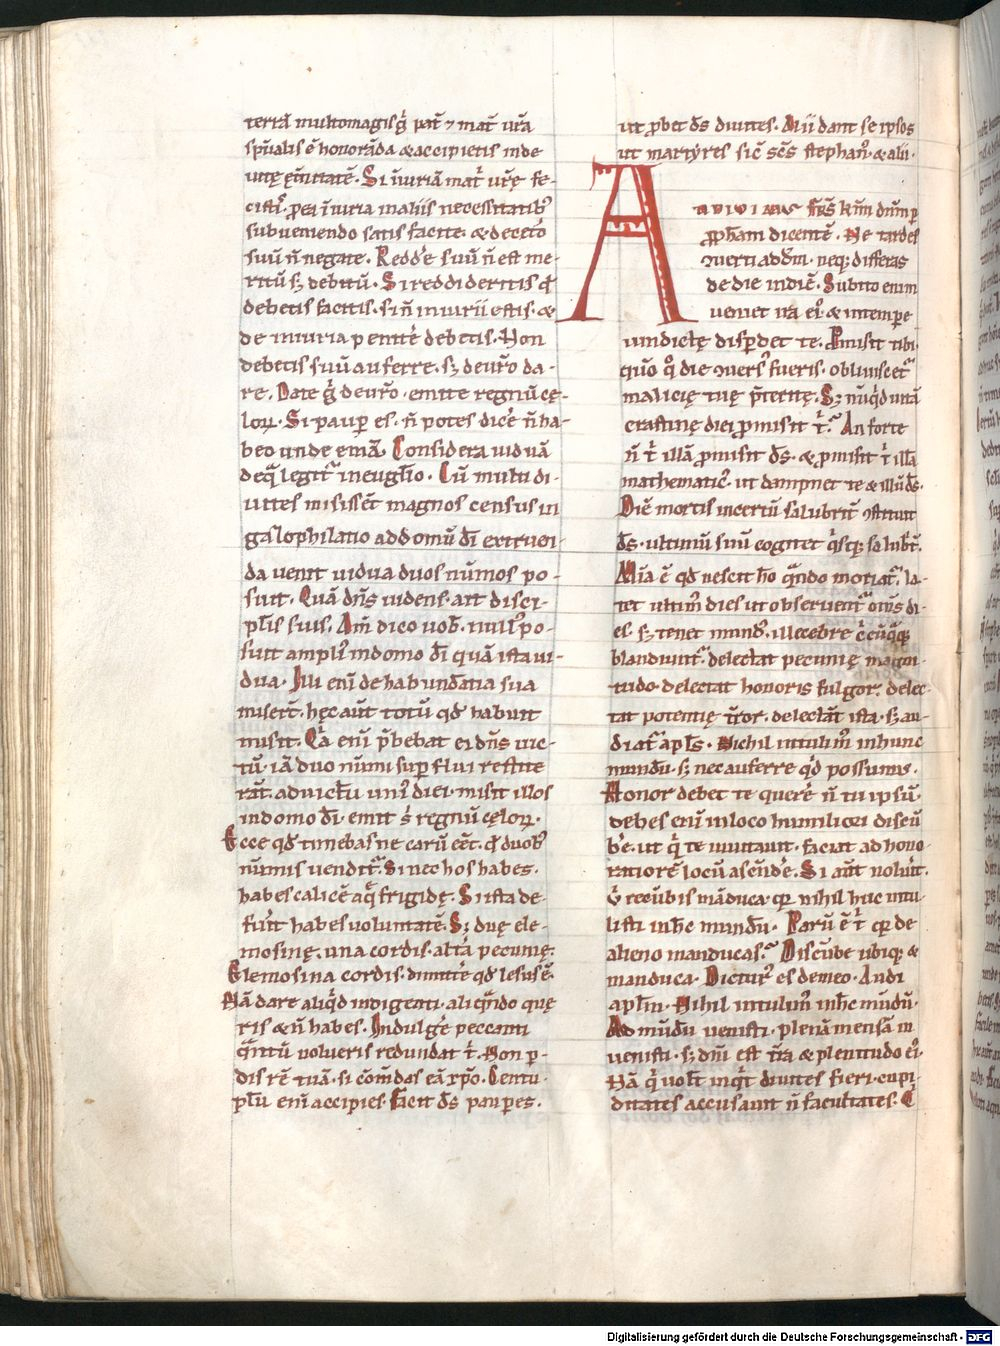 terrā multomagis g̓ pat̄ ⁊ mat̄ vr̄a
sp̄ualis ē honorāda & accipietis inde
vitę et̄nitatē. Si iīuriā mat̓ vr̄ę fe-
cistis. p̱ ea iīuria in aliis necessitatib̓
subueniendo satis facite. & decet̓o
suū n̄ negate. Redd̓e suū n̄ est me-
ritū s; debitū. Si reddideritis qd̓
debetis facitis. si n̄ iniurii estis. &
de iniuria penitē debetis. Non
debetis suū auferre. s; de ur̄o da-
re. Date g̓ de ur̄o. emite regnū cę-
loꝝ. Si paup̱ es. n̄ potes dic̓e n̄ ha-
beo unde emā. Considera uiduā
deq̄ legit̓ in euḡlio. Cū multi di-
uites misissēt magnos census in
gazophilatio ad domū dī extruen-
da uenit uidua duos nūmos po-
suit. Quā dn̄s uidens. ait disci-
pl̄is suis. Am̄ dico uob̄. null̓ po-
suit ampli̓ in domo dī quā ista ui-
dua. Illi enī de habundātia sua
miser̄t. hęc aūt totū qd̓ habuit
misit. Q̄a enī p̄bebat ei dn̄s uic-
tū. iā duo nūmi sup̱flui restite
rāt. ad uictū uni̓ diei. misit illos
in domo dī. emit s̓ regnū cęloꝝ.
Ecce qd̓ timebas ne carū eēt. qd̓ duob̓
nūmis uendit̓. Si nec hos habes.
habes calicē aq̄ frigidę. Si ista de-
fuīt habes uoluntatē. S; duę ele-
mosinę. una cordis. alt̓a pecunię.
Elemosina cordis. dimitte qd̓ lesus ē.
Nā dare aliq̓d indigenti. aliq̄ndo quę
ris & n̄ habes. Indulg̓e peccanti
q̄ntū uolueris redundat t̓. Non p̱-
dis rē tuā. si cōm̄das eā xp̄o. Centu-
plū enī accipies. Facit ds̄ paup̱es.
ut p̱bet ds̄ diuites. Alii dant se ipsos
ut martyres sic̄ sc̄s stephan̓. & alii.
AVDIVIMVS fr̄s k̄mi dn̄m p̱
p̱ph̄am dicentē. Ne tardes
ꝯuerti ad dm̄. neq; differas
de die in diē. Subito enim
ueniet ira ei̓. & in temp̱e
uindictę disp̱det te. P̱misit tibi
quō q̓ die ꝯuers̓ fueris. obliuiscet̓
malicię tuę p̄teritę. S; nūq̓d uitā
crastinę diei p̱misit t̓. An forte
n̄ t̓ illā p̱misit ds̄. & p̱misit t̓ illā
mathematic̓. ut dampnet te & illū ds̄.
Diē mortis incertū salubrit̄ ꝯstituit
ds̄. ultimū suū cogitet q̓sq; salubr̄t.
Mīa ē qd̓ nescit hō q̄ndo moriat̓. la-
tet ultim̓ dies ut obseruent̓ om̄s di-
es. s; tenet mund̓. illecebre c̄cūq̄q;
blandiunt̓. delectat pecunię magni-
tudo. delectat honoris fulgor. delec-
tat potentię t̄ror. delectāt ista. s; au-
diat̓ apl̄s. Nichil intulim̓ in hunc
mundū. s; nec auferre qd̓ possumus.
Honor debet te quer̓e n̄ tu ipsū.
debes enī in loco humiliori discū
b̓e. ut q̓ te inuitauit. faciat ad hono-
ratiorē locū ascēnd̓e. Si aūt noluīt.
u̓ recūbis māduca. qr̄ nihil huc intu-
listi in h̄c mundū. Parū ē t̓ qr̄ de
alieno manducas. Discūbe ubiq; &
manduca. Dictur̓ es de meo. Audi
apl̄m. Nihil intulim̓ in h̄c mūdū.
Ad mūdū uenisti. plenā mensā in
uenisti. s; dnī est t̄ra & plenitudo ei̓.
Nā q̓ uolt̄ inq̓t diuites fieri. cupi-
ditates accusauit n̄ facultates. C
Digitalisierung gefördert durch die Deutsche Forschungsgemeinschaft - DFG